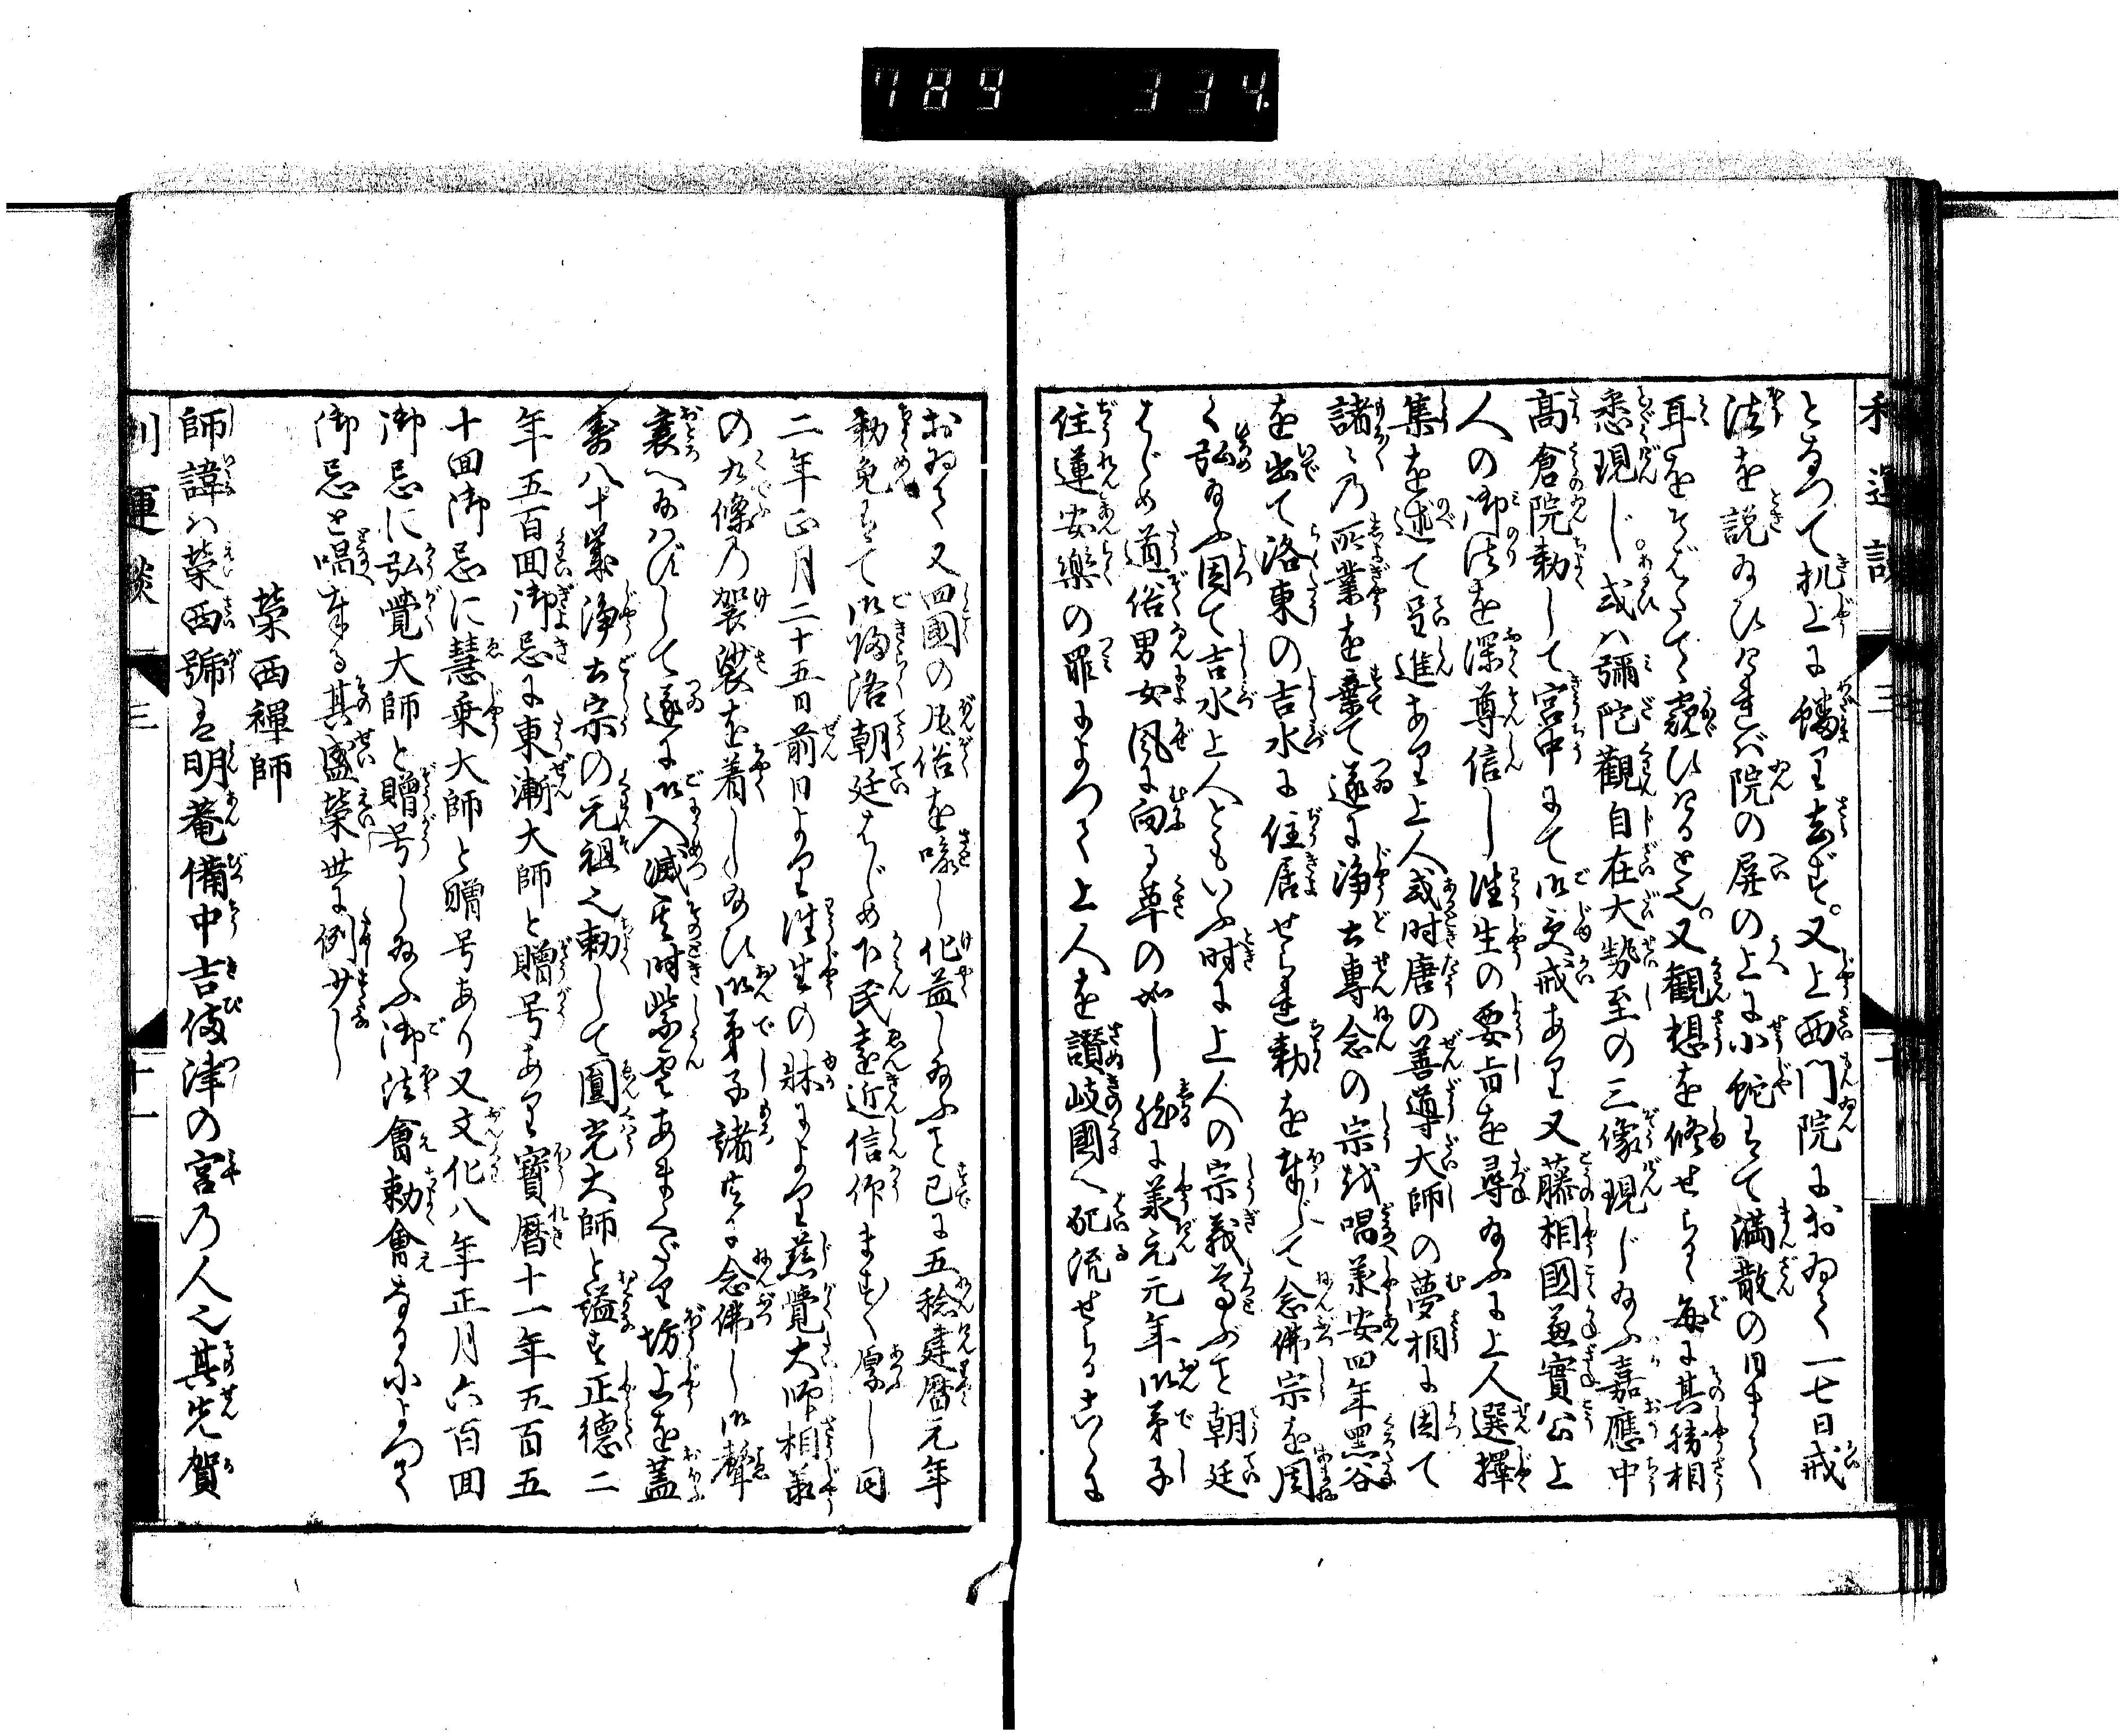 789 334.
となつて机上に蟠り去ず。又上西門院におゐて一七日戒
法を説給ひけれバ院の屏の上に小蛇来て満散の日まで
耳をそばだてゝ窺ひけるとぞ。又観想を修せらるゝ毎に其勝相
悉現じ。或ハ彌陀觀自在大勢至の三像現じ給ふ嘉應中
高倉院勅して宮中にて御受戒あり又藤相國兼實公上
人の御法を深尊信し往生の要旨を尋給ふに上人選擇
集を述て呈進あり上人或时唐の善導大师の夢相に因て
諸〻乃所業を棄て遂に浄土專念の宗を唱承安四年黒谷
を出て洛東の吉水に住居せられ勅を奉じて念佛宗を周
く弘給ふ因て吉水上人ともいふ时に上人の宗義尊ぶこと朝廷
をはじめ道俗男女風に向る草の如し然に承元元年御弟子
住蓮安樂の罪によつて上人を讃岐國へ配流せらるこゝに
おゐて又四國の凡俗を喩し化益し給ふこと已に五稔建暦元年
勅免にて御帰洛朝廷をはじめ下民遠近信仰ます〱厚し同
二年正月二十五日前日より往生の牀により慈覺大师相承
の九條乃袈裟を着し給ひ御弟子諸共に念佛し御聲
衰へ給ハずして遂に御入滅其时紫雲あまくだり坊上を蓋
壽八十歳浄土宗の元祖也勅して圓光大师と諡す正德二
年五百回御忌に東漸大師と贈号あり寳暦十一年五百五
十回御忌に慧乗大師と贈号あり又文化八年正月六百回
御忌に弘覺大師と贈号し給ふ御法會勅會なるによつて
御忌と唱奉る其盛榮世に例少し
榮西禪師
師諱ハ榮西號を明菴備中吉備津の宮乃人也其先賀